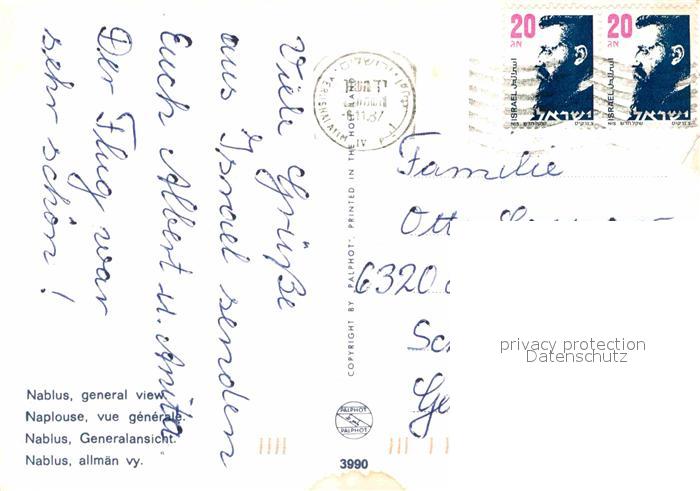 Viele Grüße
aus Israel senden
Euch Albert u. Anita
Der Flug war
sehr schön!
Nablus, general view.
Naplouse, vue générale.
Nablus, Generalansicht.
Nablus, allmän vy.
COPYRIGHT BY PALPHOT, PRINTED IN THE HOLY LAND
PALPHOT
3990
YERUSHALAYIM
-6.11.87
20
אג
ISRAEL اسرائيل
ישראל
20
אג
ISRAEL اسرائيل
ישראל
Familie
Ott
6320
privacy protection
Datenschutz